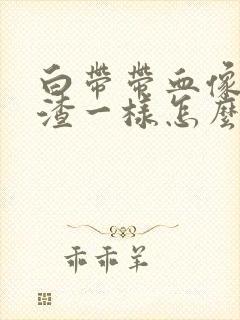 白带带血像
渣一样怎麽
乖乖羊